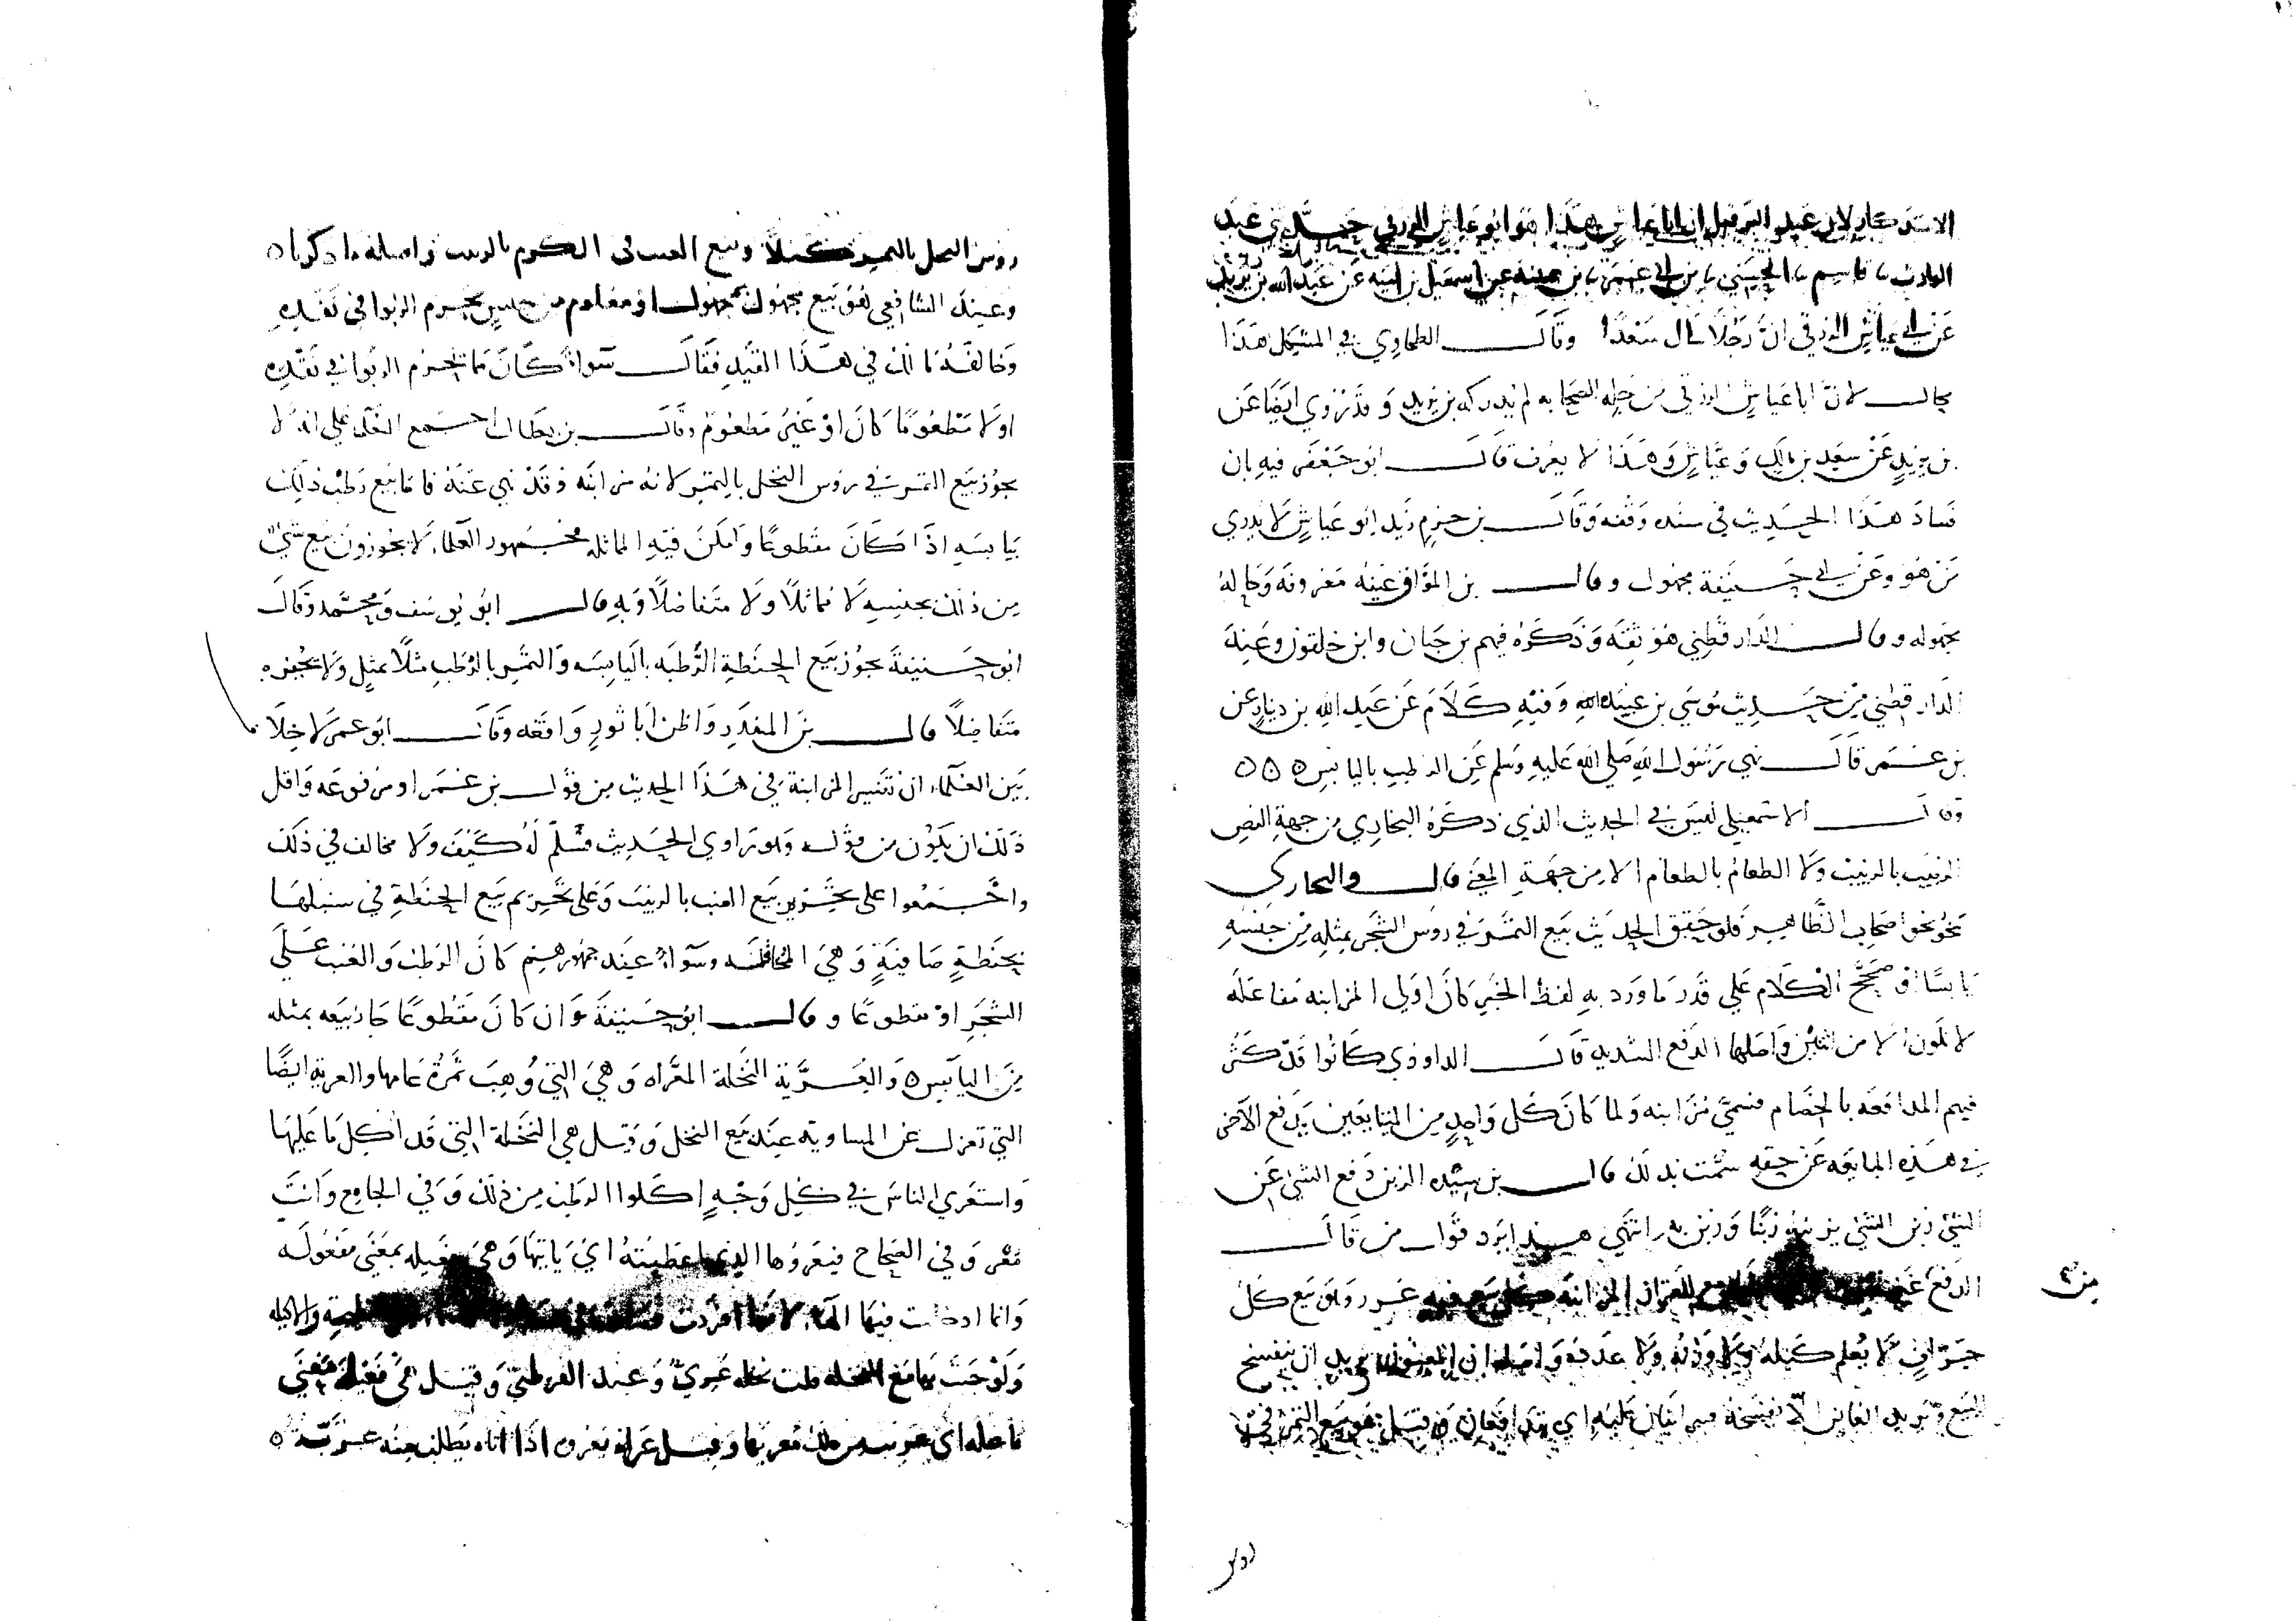 الاستذكار لابن عبد البر قيل ان ابا عياش هذا هو ابو عياش الزرقي حدثني عبد
الوارث، قاسم، الخشني، بن ابي عمر، بن عيينة عن اسمعيل بن امية عن عبد الله بن يزيد
عن ابي عياش الزرقي ان رجلا سال سعدا وقال الطحاوي في المشكل هذا
محال لان ابا عياش الزرقي من جلة الصحابه لم يدركه بن يزيد وقد روي ايضا عن
بن يزيد عن سعيد بن مالك وعياش وهذا لا يعرف قال ابو جعفر فيه بان
فساد هذا الحديث في سنده وقفه وقال بن حزم زيد ابو عياش لا يدري
من هو وعن ابي حنيفة مجهول وقال بن المواق عينه معروفه وحاله
مجهوله وقال الدارقطني هو ثقه وذكره فيهم بن حبان وابن خلفون وعند
الدارقطني من حديث موسي بن عبيدالله وفيه كلام عن عبد الله بن دينار عن
بن عمر قال نهي رسول الله صلي الله عليه وسلم عن الرطب باليابس ٥ ٥ ٥
وقال الاسمعيلي ليس في الحديث الذي ذكره البخاري من جهة النص
الزبيب بالزبيب ولا الطعام بالطعام الا من جهة المعني قال والبخاري
نحو نحو اصحاب الظاهر فلو حقق الحديث بيع الثمر في روس الشجر بمثله من جنسه
يابسا او صحح الكلام علي قدر ما ورد به لفظ الخبر كان اولي المزابنه مفاعله
لا تكون الا من اثنين واصلها الدفع الشديد قال الداوذي كانوا قد كثر
فيهم المدافعه بالخصام فسمي مزابنه ولما كان كل واحد من المتبايعين يدفع الاخر
في هذه المبايعه عن حقه سميت بذلك قال بن سيده الزبن دفع الشي عن
الشي زبن الشي يزبنه زبنا وزبن به انتهي هذا يرد قول من قال
الدفع للقزاز المزابنه كل بيع فيه غرر وهو بيع كل
من
جزاف لا يعلم كيله ولا وزنه ولا عدده واصله ان المغبون يريد ان يفسخ
البيع ويريد الغابن الا يفسخه فيتزابنان عليه اي يتدافعان وقيل هو بيع التمر في
روس
روس النخل بالتمر كيلا وبيع العنب في الكرم بالزبيب واصله ما ذكرنا ٥
وعند الشافعي هو بيع مجهول بمجهول او معلوم من جنس يحرم الربوا في نقده
وخالفه مالك في هذا القيد فقال سواء كان مما يحرم الربوا في نقده
اولا مطعوما كان او غير مطعوم وقال بن بطال اجمع العلما علي انه لا
يجوز بيع التمر في روس النخل بالتمر لانه مزابنه وقد نهي عنه فاما بيع رطب ذلك
بيابسه اذا كان مقطوعا وامكن فيه المماثله فجمهور العلماء لا يجوزون بيع شي
من ذلك بجنسه لا مماثلا ولا متفاضلا وبه قال ابو يوسف ومحمد وقال
ابو حنيفة يجوز بيع الحنطة الرطبه باليابسه والتمر بالرطب مثلا بمثل ولا يجيزه
متفاضلا قال بن المنذر واظن ابا ثور وافقه وقال ابو عمر لا خلاف
بين العلماء ان تفسير المزابنة في هذا الحديث من قول بن عمر او مرفوعه واقل
ذلك ان يكون من قوله وهو راوي الحديث فسلم له كيف ولا مخالف في ذلك
واجمعوا علي تحريم بيع العنب بالزبيب وعلي تحريم بيع الحنطة في سنبلها
بحنطة صافية وهي المحاقله وسواء عند جمهورهم كان الرطب والعنب علي
الشجر او مقطوعا وقال ابو حنيفة وان كان مقطوعا جاز بيعه بمثله
من اليابس ٥ والعرية النخلة المعراه وهي التي وهبت ثمرة عامها والعرية ايضا
التي تعزل عن المساومة عند بيع النخل وقيل هي النخلة التي قد اكل ما عليها
واستعري الناس في كل وجه اكلوا الرطب من ذلك وفي الجامع وانت
معر وفي الصحاح فيعروها الذي اعطيته اي ياتيها وهي فعيله بمعني مفعوله
وانما ادخلت فيها الهاء لانها افردت النطيحة والاكيله
ولو جئت بها مع النخله قلت نخلة عري وعند القرطبي وقيل هي فعيلة بمعني
فاعله اي عريت من ملك معريها وقيل عراه يعروه اذا اتاه يطلب منه عرية ٥